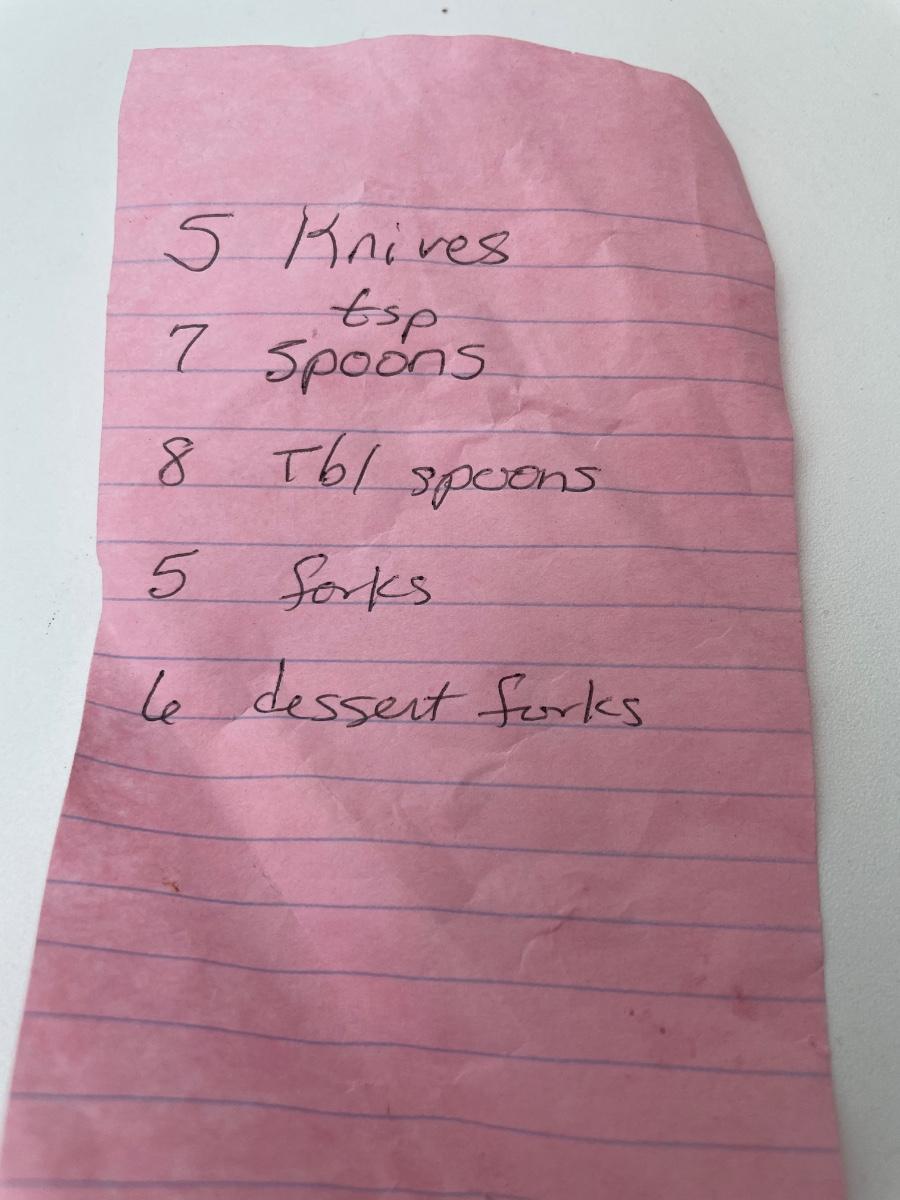 5 Knives
tsp
7 spoons
8 Tbl spoons
5 forks
6 dessert forks